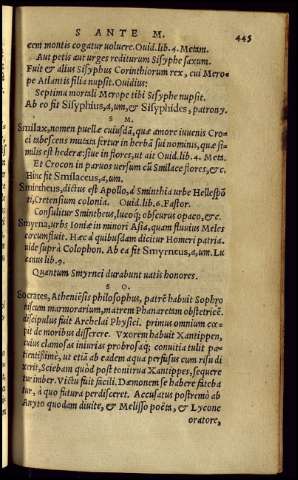 S ANTE M. 445
eem montis cogatur voluere. Ouid. lib. 4. Metam.
Aut petis aut urges rediturum Sisyphe saxum.
Fuit & alius Sisyphus Corinthiorum rex, cui Mero
pe Atlantis filia nupsit. Ouidius:
Septima mortali Merope tibi Sisyphe nupsit.
Ab eo fit Sisyphius, a, um, & Sisyphides, patrony.
S M.
Smilax, nomen puellæ cuiusdã, quæ amore iuuenis Cro
ci tabescens mutata fertur in herbã sui nominis, quæ si-
milis est hederæ: siue in flores, ut ait Ouid. lib. 4. Meta.
Et Crocon in paruos versum cũ Smilace flores, & c.
Hinc fit Smilaceus, a, um.
Smintheus, dictus est Apollo, à Sminthia urbe Hellespõ
ti, Cretensium colonia. Ouid. lib. 6. Fastor.
Consulitur Smintheus, lucoq; obscurus opaco, & c.
Smyrna, urbs Ioniæ in minori Asia, quam fluuius Meles
circumfluit. Hæc à quibusdam dicitur Homeri patria.
uide suprà Colophon. Ab ea fit Smyrneus, a, um. Lu
canus lib. 9.
Quantum Smyrnei durabunt uatis honores.
S O.
Socrates, Atheniẽsis philosophus, patrẽ habuit Sophro
niscum marmorarium, matrem Phanaretam obstetricẽ.
discipulus fuit Archelai Physici. primus omnium cœ-
pit de moribus disserere. Vxorem habuit Xantippen,
cuius clamosas iniurias probrosaq; conuitia tulit pa-
tientißimè, ut etiã ab eadem aqua perfusus cum risu di
xerit, Sciebam quòd post tonitrua Xantippes, sequere
tur imber. Victu fuit facili. Dæmonem se habere fateba
tur, à quo futura perdisceret. Accusatus postremò ab
Anyto quodam diuite, & Melisso poëta, & Lycone
oratore,